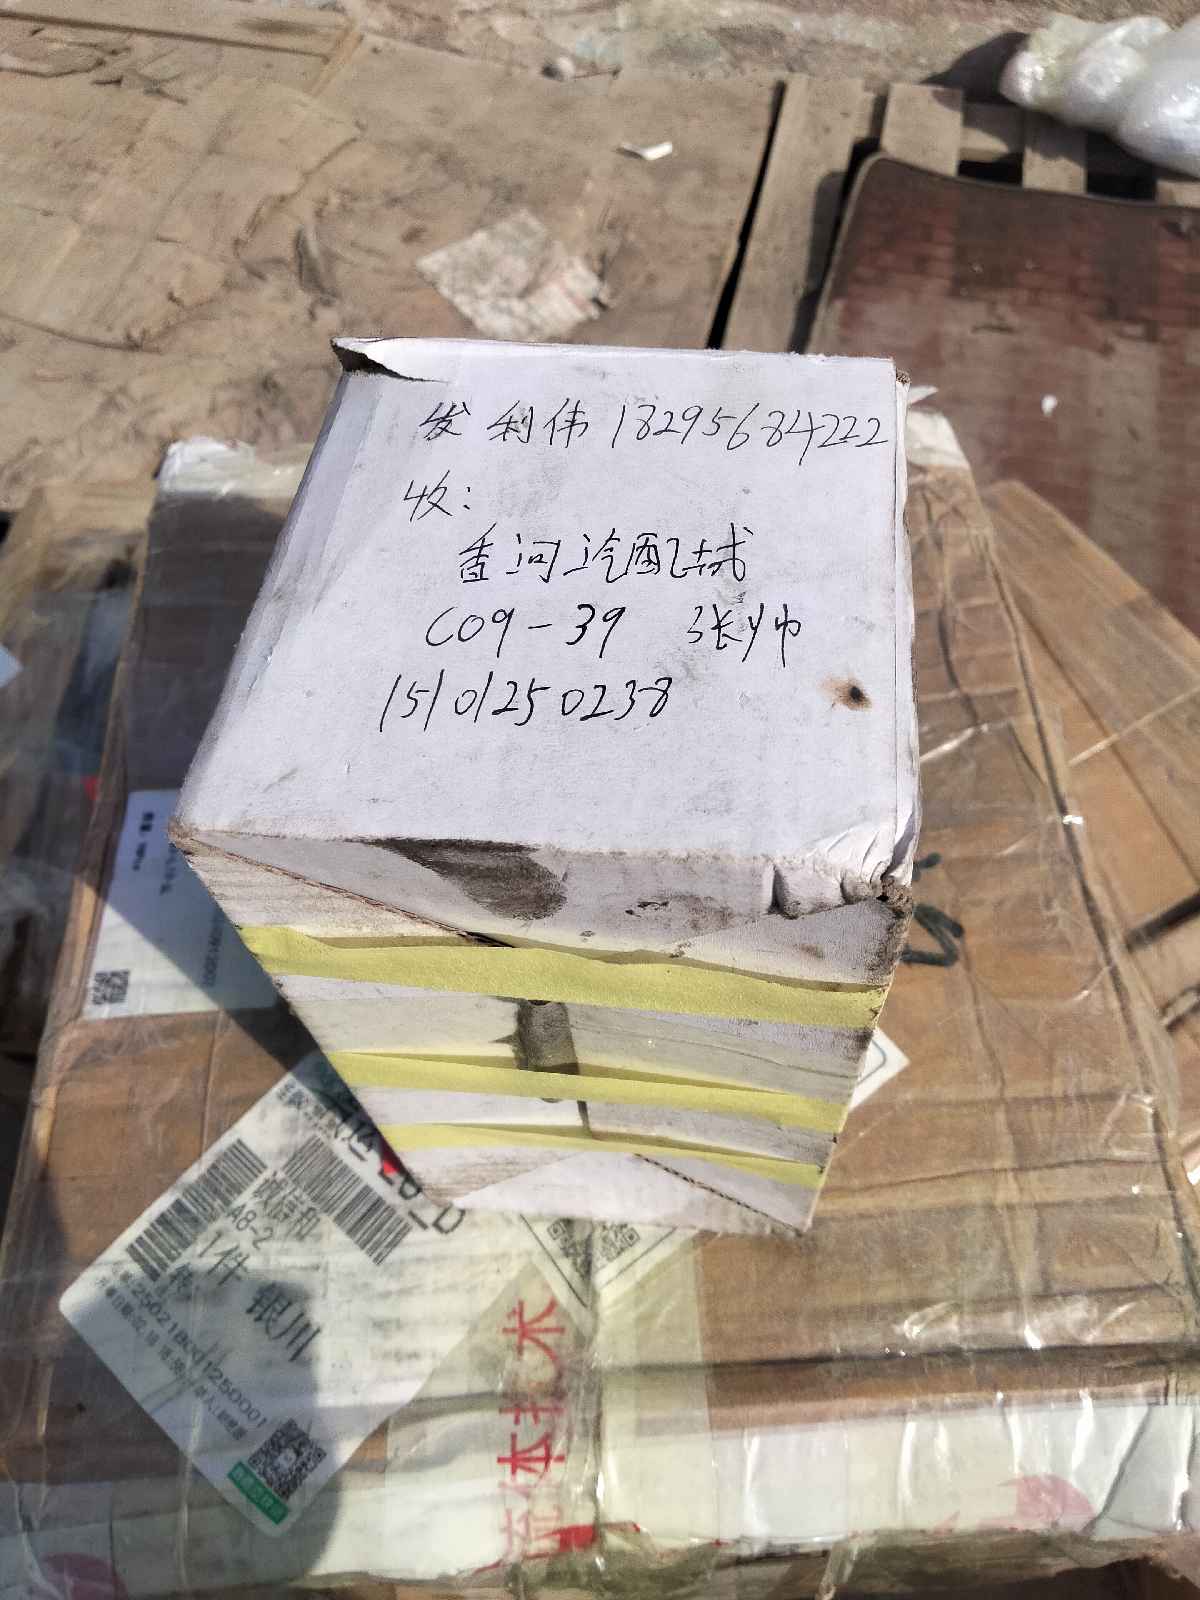 发 利伟 18295684222
收:
香河汽配城
C09-39 张帅
15101250238
诚信和
A8-2
1件
银川
流体技术